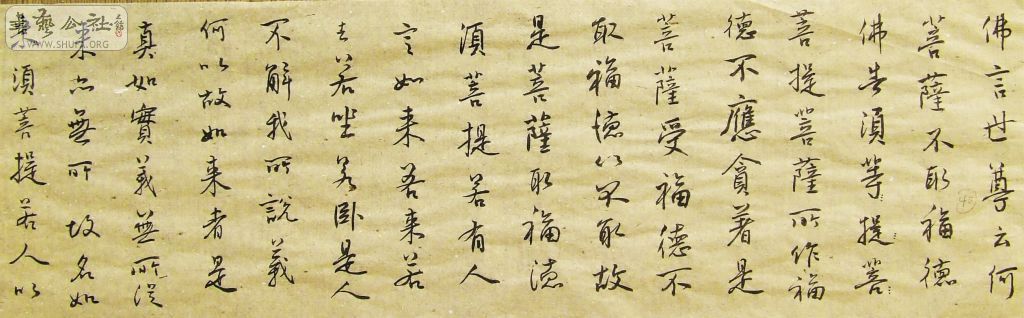 佛言世尊云何
菩薩不取福德
佛告須等提菩
菩提菩薩所作福
德不應貪著是
菩薩受福德不
取福德以不取故
是菩薩取福德
須菩提若有人
言如来若来若
去若坐若卧是人
不解我所說義
何以故如来者是
真如實義無所從
来亦無所故名如
来須菩提若人以
43
藝公社
WWW.SHUFA.ORG